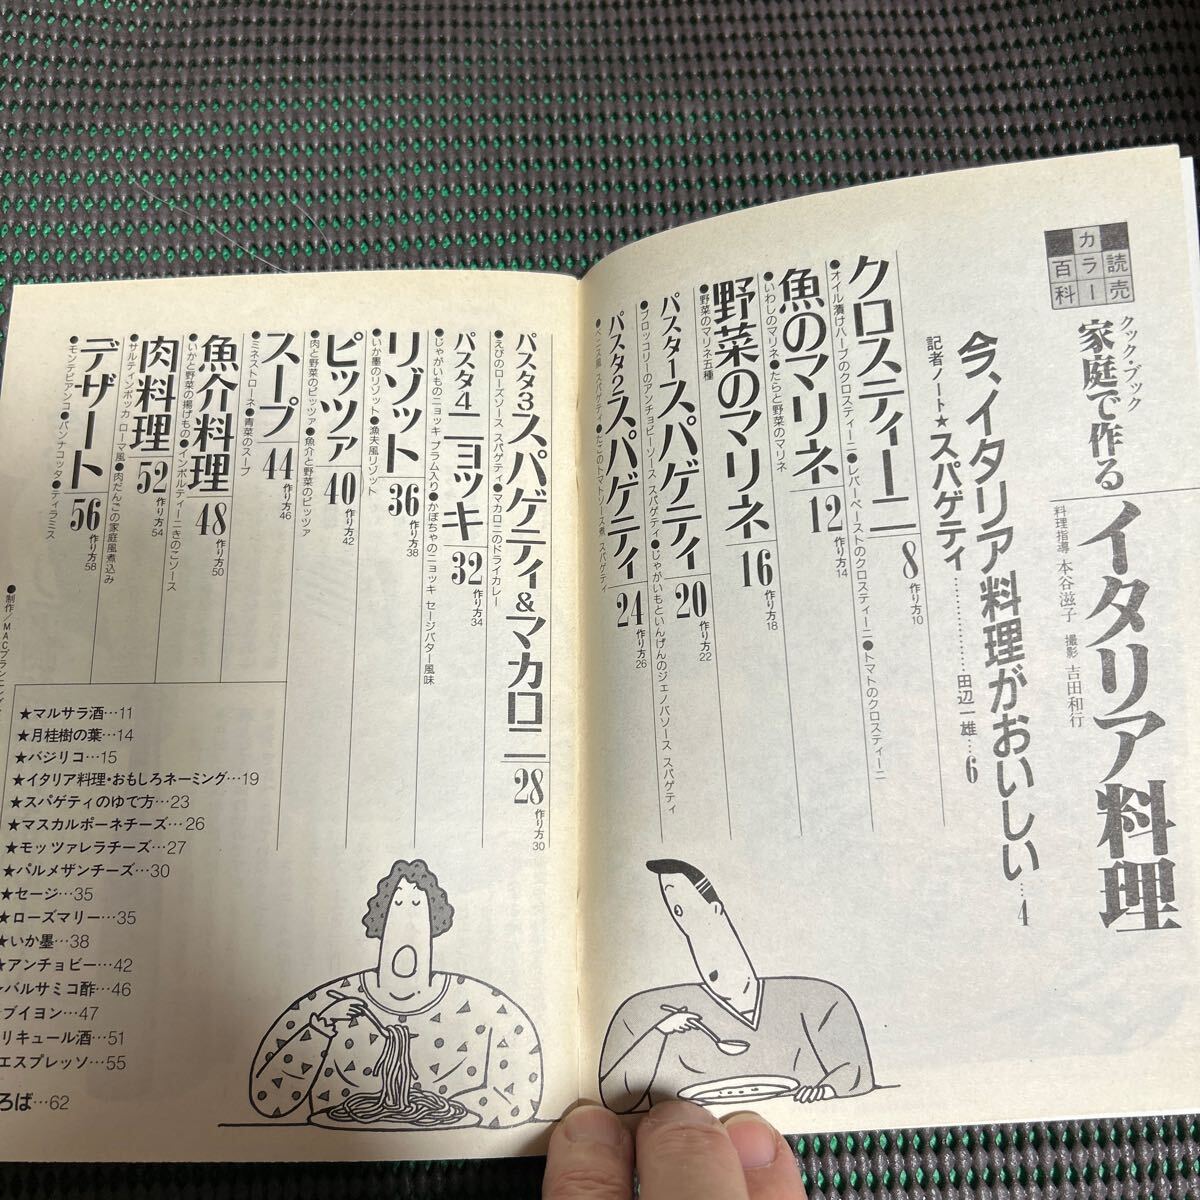 読売
カラー
百科
クック・ブック
家庭で作る
イタリア料理
料理指導 本谷滋子 撮影 吉田和行
今、イタリア料理がおいしい…4
記者ノート★スパゲティ……………田辺一雄…6
クロスティーニ 8 作り方10
●オイル漬けハーブのクロスティーニ●レバーペーストのクロスティーニ●トマトのクロスティーニ
魚のマリネ 12 作り方14
●いわしのマリネ●たらと野菜のマリネ
野菜のマリネ 16 作り方18
●野菜のマリネ五種
パスタ1 スパゲティ 20 作り方22
●ブロッコリーのアンチョビーソース スパゲティ●じゃがいもといんげんのジェノバソース スパゲティ
パスタ2 スパゲティ 24 作り方26
●ベニス風 スパゲティ●たこのトマトソース煮 スパゲティ
パスタ3 スパゲティ&マカロニ 28 作り方30
●えびのローズソース スパゲティ●マカロニのドライカレー
パスタ4 ニョッキ 32 作り方34
●じゃがいものニョッキ プラム入り●かぼちゃのニョッキ セージバター風味
リゾット 36 作り方38
●いか墨のリゾット●漁夫風リゾット
ピッツァ 40 作り方42
●肉と野菜のピッツァ●魚介と野菜のピッツァ
スープ 44 作り方46
●ミネストローネ●青菜のスープ
魚介料理 48 作り方50
●いかと野菜の揚げもの●インボルティーニきのこソース
肉料理 52 作り方54
●サルティンボッカ ローマ風●肉だんごの家庭風煮込み
デザート 56 作り方58
●モンテビアンコ●パンナコッタ●ティラミス
★マルサラ酒…11
★月桂樹の葉…14
★バジリコ…15
★イタリア料理・おもしろネーミング…19
★スパゲティのゆで方…23
★マスカルポーネチーズ…26
★モッツァレラチーズ…27
★パルメザンチーズ…30
★セージ…35
★ローズマリー…35
★いか墨…38
★アンチョビー…42
★バルサミコ酢…46
ブイヨン…47
リキュール酒…51
エスプレッソ…55
ろば…62
●制作/MACプランニング